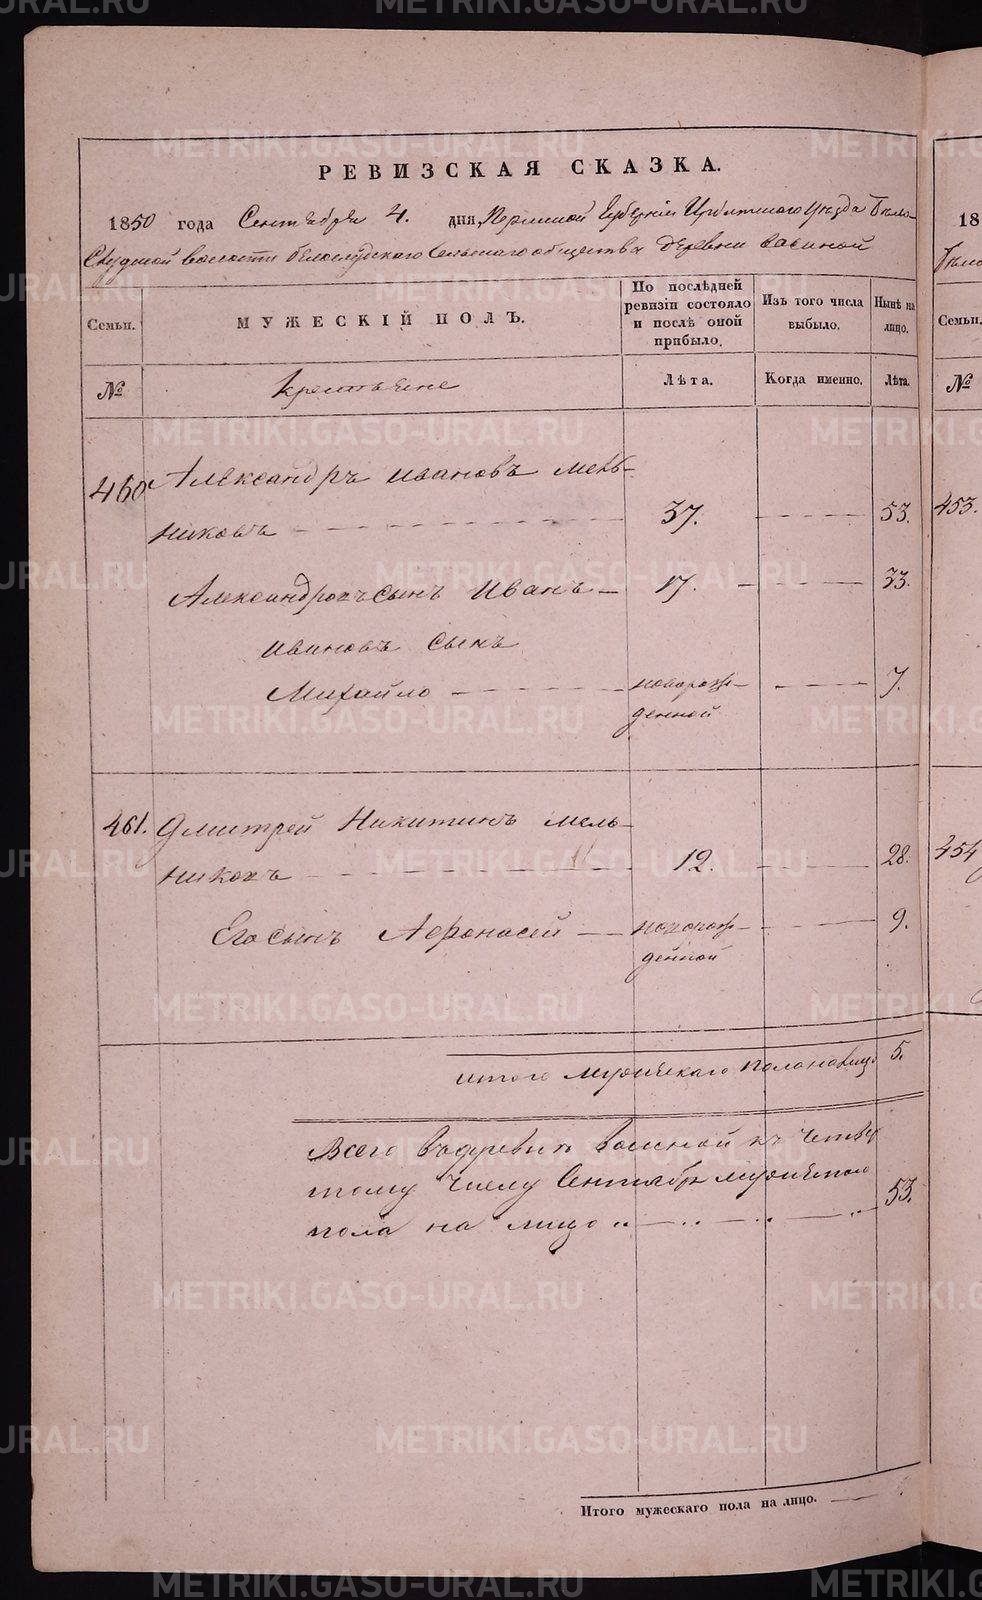 METRIKI.GASO-URAL.RU
РЕВИЗСКАЯ СКАЗКА.
1850 года Сентября 4. дня, Пермской Губернии Ирбитскаго уѣзда Бѣло-
слудской волости Белослудскаго Сельскаго общества деревни Васиной
Семьи.
МУЖЕСКІЙ ПОЛЪ.
По послѣдней ревизіи состояло и послѣ оной прибыло.
Изъ того числа выбыло.
Нынѣ на лицо.
№
крестьяне
Лѣта.
Когда именно.
Лѣта.
460 Александръ Ивановъ Мель-
никовъ 37. 53.
Александровъ сынъ Иванъ 17. 33.
Ивановъ сынъ
Михайло новорож- 7.
денной
461. Дмитрей Никитинъ Мель-
никовъ 12. 28.
Его сынъ Афонасей новорож- 9.
денной
итого мужескаго пола налицо 5.
Всего въ деревнѣ Васиной къ четвер
тому числу Сентября мужескаго
пола на лицо 53.
Итого мужескаго пола на лицо.
18
Семьи.
№
453.
454